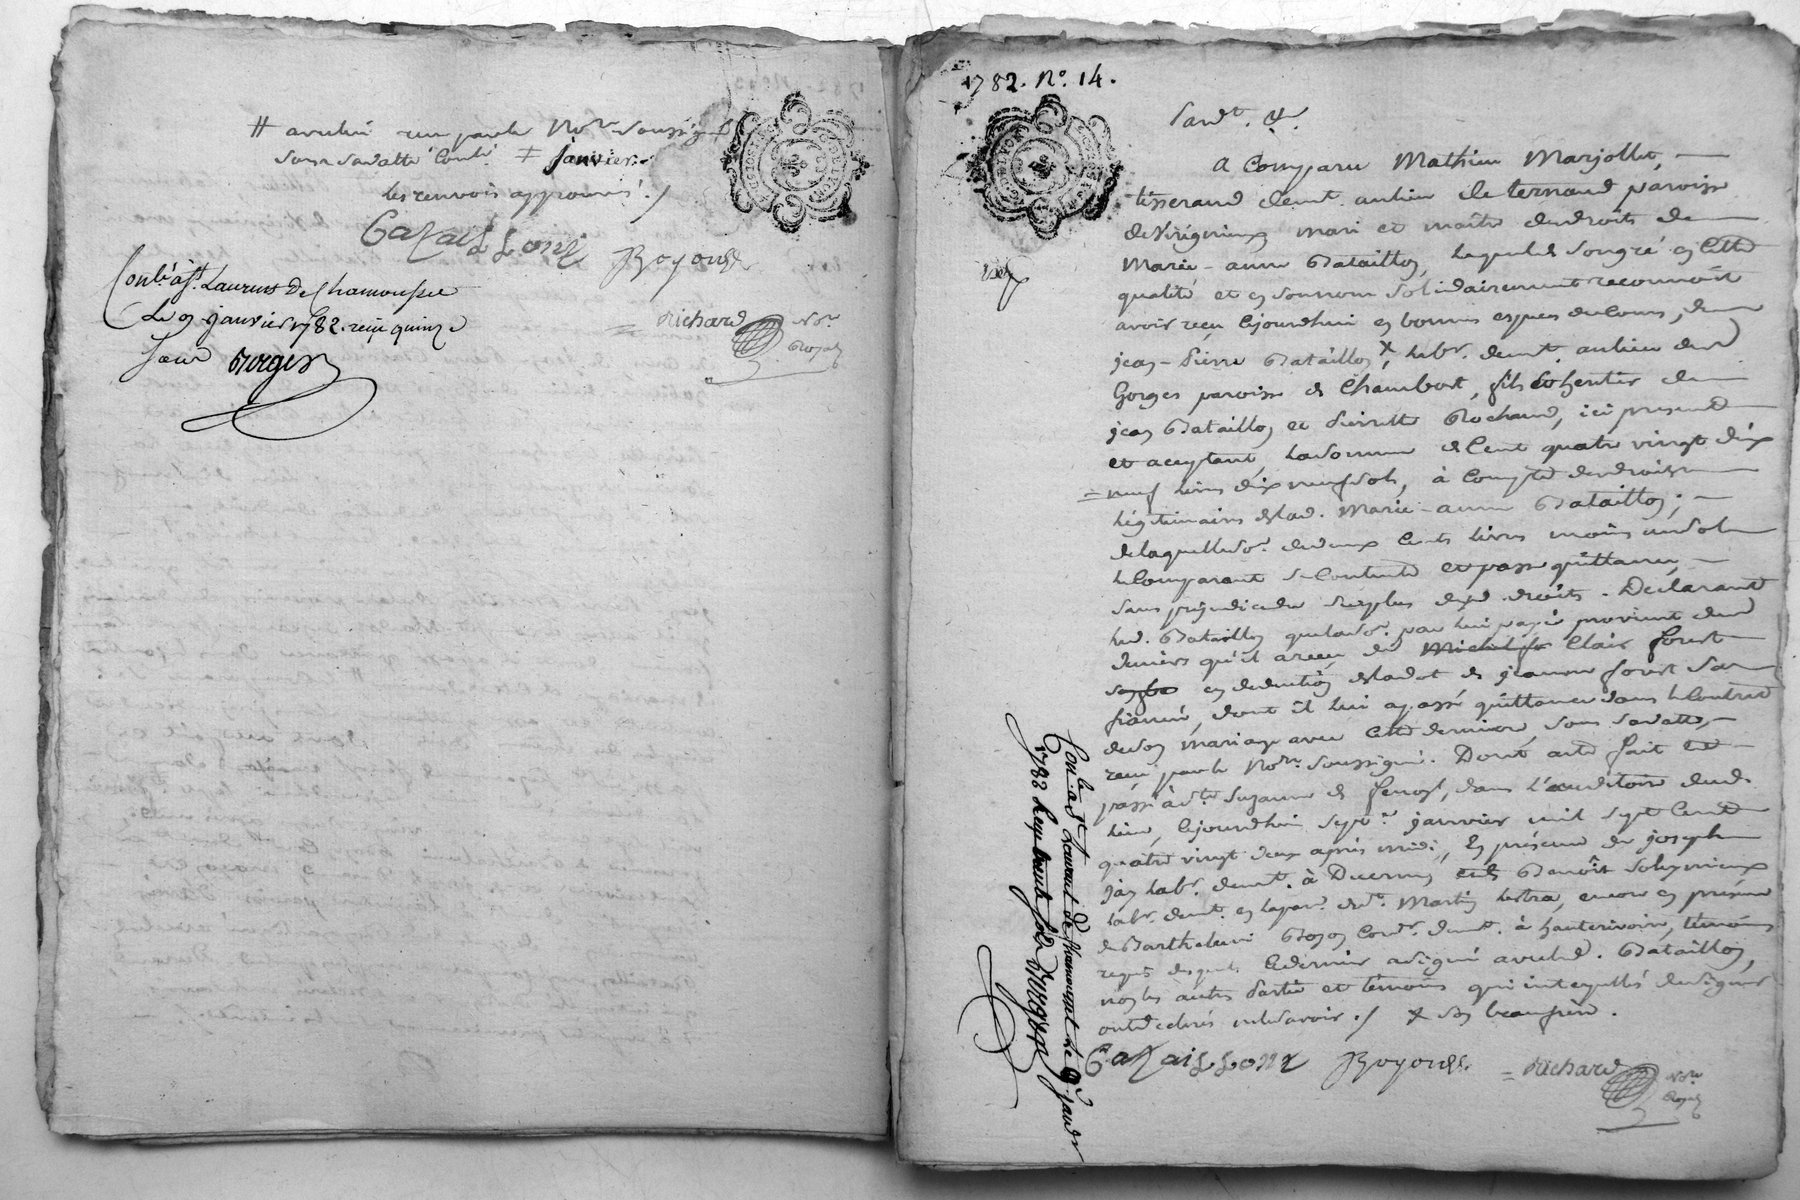 # avulié reçu par le No.re soussigné
sous sa datte Conlé ‡ janvier.
les renvois approuvés ./
Batailloni Boyond
Richard No.re
Royal
Conlé à St. Laurens De Chamousset
Le 9 janvier 1782. reçu quinze
sous Borgero
1782. N.º 14.
Pard.t &.
A Comparu Mathieu Marjollet,
tisserand demt. au lieu de ternand paroisse
de Virignieux mari et maître des droits de
Marie-anne Bataillon, lequel de son gré en cette
qualité et en son nom solidairement reconnoit
avoir reçu cejourdhui en bonnes espèces de Cours, de
jean-Pierre Bataillon x, labr. demt. au lieu de
Gorges paroisse de Chambost, fils et heritier de
jean Bataillon et Pierrette Rochand, ici present
et aceptant, la somme de Cent quatre vingt dix
neuf livres dix neuf sols, à Compte des droits
légitimaires de lad. Marie-anne Bataillon;
de laquelle so.e de deux Cents livres moins un sol
le Comparant se Contente et passe quittance,
sans préjudice du surplus desd. droits. Déclarant
led. Bataillon que lad. so.e par lui payée provient des
deniers qu'il a reçu de Clair forest
en deduction de la dot de jeanne forest sa
fiancée, dont il lui a passé quittance dans le Contrat
de son mariage avec cette dernière, sous sa datte,
reçu par le No.re soussigné. Dont acte fait et
passé à S.te Suzanne de ferost, dans l'auditoire dud.
lieu, cejourdhui sept.e janvier mil sept Cent
quatre vingt deux après midi, En présence de joseph
jay labr. demt. à Duerne, Benoit Soleymieux
labr. demt. en la par.e de St. Martin lestra, encore en présence
de Barthelemi Boyon Cord.r demt. à hauterivoire, témoins
requis desquels le dernier a signé avec led. Bataillon,
non les autres Partie et témoins qui interpellés de signer
ont declarés ne le savoir ./ x son beaufrère.
Batailloni Boyond Richard No.re
Royal
Conlé à St. Laurent de Chamousset le 9e janvr
1782 Reçu trente sols Borgero